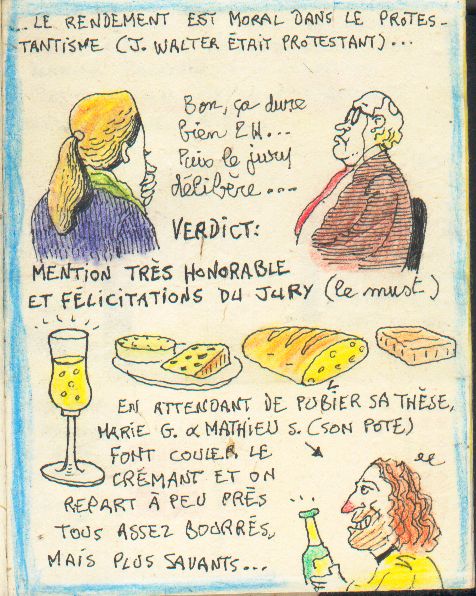 ...LE RENDEMENT EST MORAL DANS LE PROTES-
TANTISME (J. WALTER ÉTAIT PROTESTANT)...
Bon, ça dure
bien 2H...
Puis le jury
délibère....
VERDICT:
MENTION TRÈS HONORABLE
ET FÉLICITATIONS DU JURY (le must)
EN ATTENDANT DE PUBIER SA THÈSE,
MARIE G. & MATHIEU S. (SON POTE)
FONT COULER LE
CRÉMANT ET ON
REPART À PEU PRÈS
TOUS ASSEZ BOURRÉS,
MAIS PLUS SAVANTS...